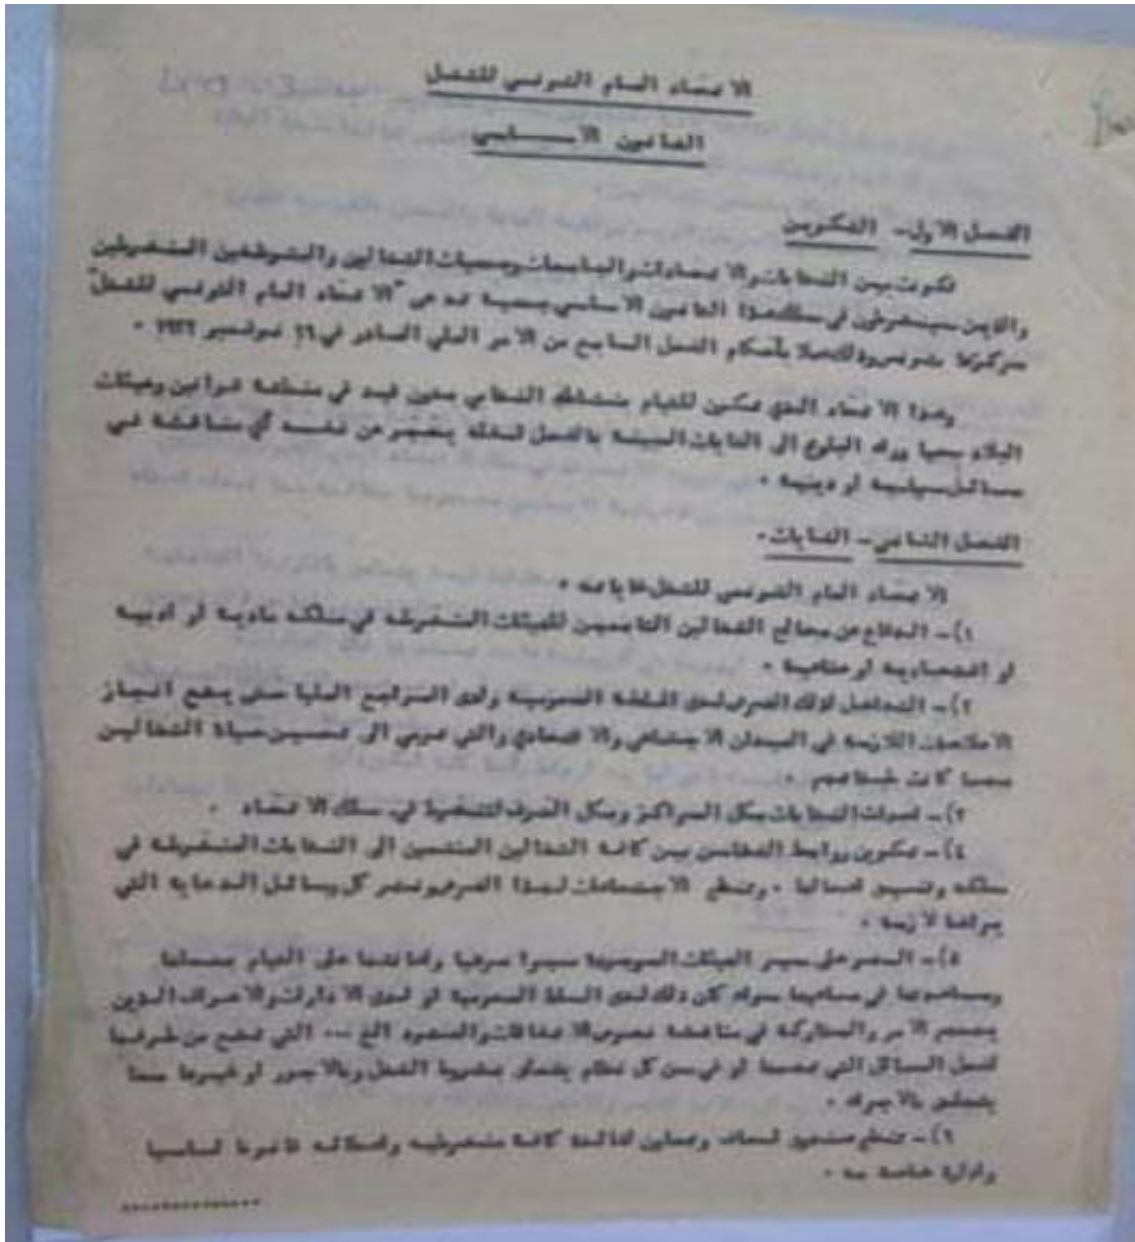 الاتحاد العام التونسي للشغل
القانون الأساسي
الفصل الاول – التكوين
تكونت بين النقابات والاتحادات والجامعات وجمعيات الشغالين والموظفين المنخرطين
والذين سينخرطون في سلك هذا القانون الاساسي جمعية تدعى "الاتحاد العام التونسي للشغل"
مركزها بتونس وذلك عملا بأحكام الفصل السابع من الامر العلي الصادر في ١٦ نوفمبر ١٩٣٢ .
وهذا الاتحاد الذي تكون للقيام بنشاطه النقابي بدون قيد في منطقة قوانين وهيئات
البلاد يحجر عن نفسه أي مناقشة في
مسائل سياسية او دينية .
الفصل الثاني – الغايات .
الاتحاد العام التونسي للشغل غاياته .
١) – الدفاع عن مصالح الشغالين التابعين للهيئات المنخرطة في سلكه مادية او ادبية
او اقتصادية او صناعية .
٢) – التداخل لذلك الغرض لدى السلطة العمومية ولدى المراجع العليا حتى يقع انجاز
الاصلاحات اللازمة في الميدان الاجتماعي والاقتصادي والتي ترمي الى تحسين حياة الشغالين
مهما كانت
٣) – احداث النقابات بكل المراكز وبكل الحرف لتنخرط في سلك الاتحاد .
٤) – تكوين روابط التضامن بين كافة الشغالين المنتمين الى النقابات المنخرطة في
سلكه وتنسيق اعمالها . وتنظيم الاجتماعات لهذا الغرض ونشر كل وسائل الدعاية التي
يراها لازمة .
٥) – السهر على سير الهيئات الموجودة سيرا مرضيا واعانتها على القيام بعملها
ومساعدتها في مساعيها سواء كان ذلك لدى السلط العمومية او لدى الادارات والاعراف الذين
يهمهم الامر والمشاركة في مناقشة نصوص الاتفاقات والعقود الخ ... التي تقع من طرفها
لفصل المسائل التي تهمها او في سن كل نظام يتعلق بشروط الشغل وبالاجور او غيرها مما
يتعلق بالاجراء .
٦) – تنظيم صندوق اسعاف وتعاون لفائدة كافة منخرطيه واعطائه قانونا اساسيا
وادارة خاصة به .
..............